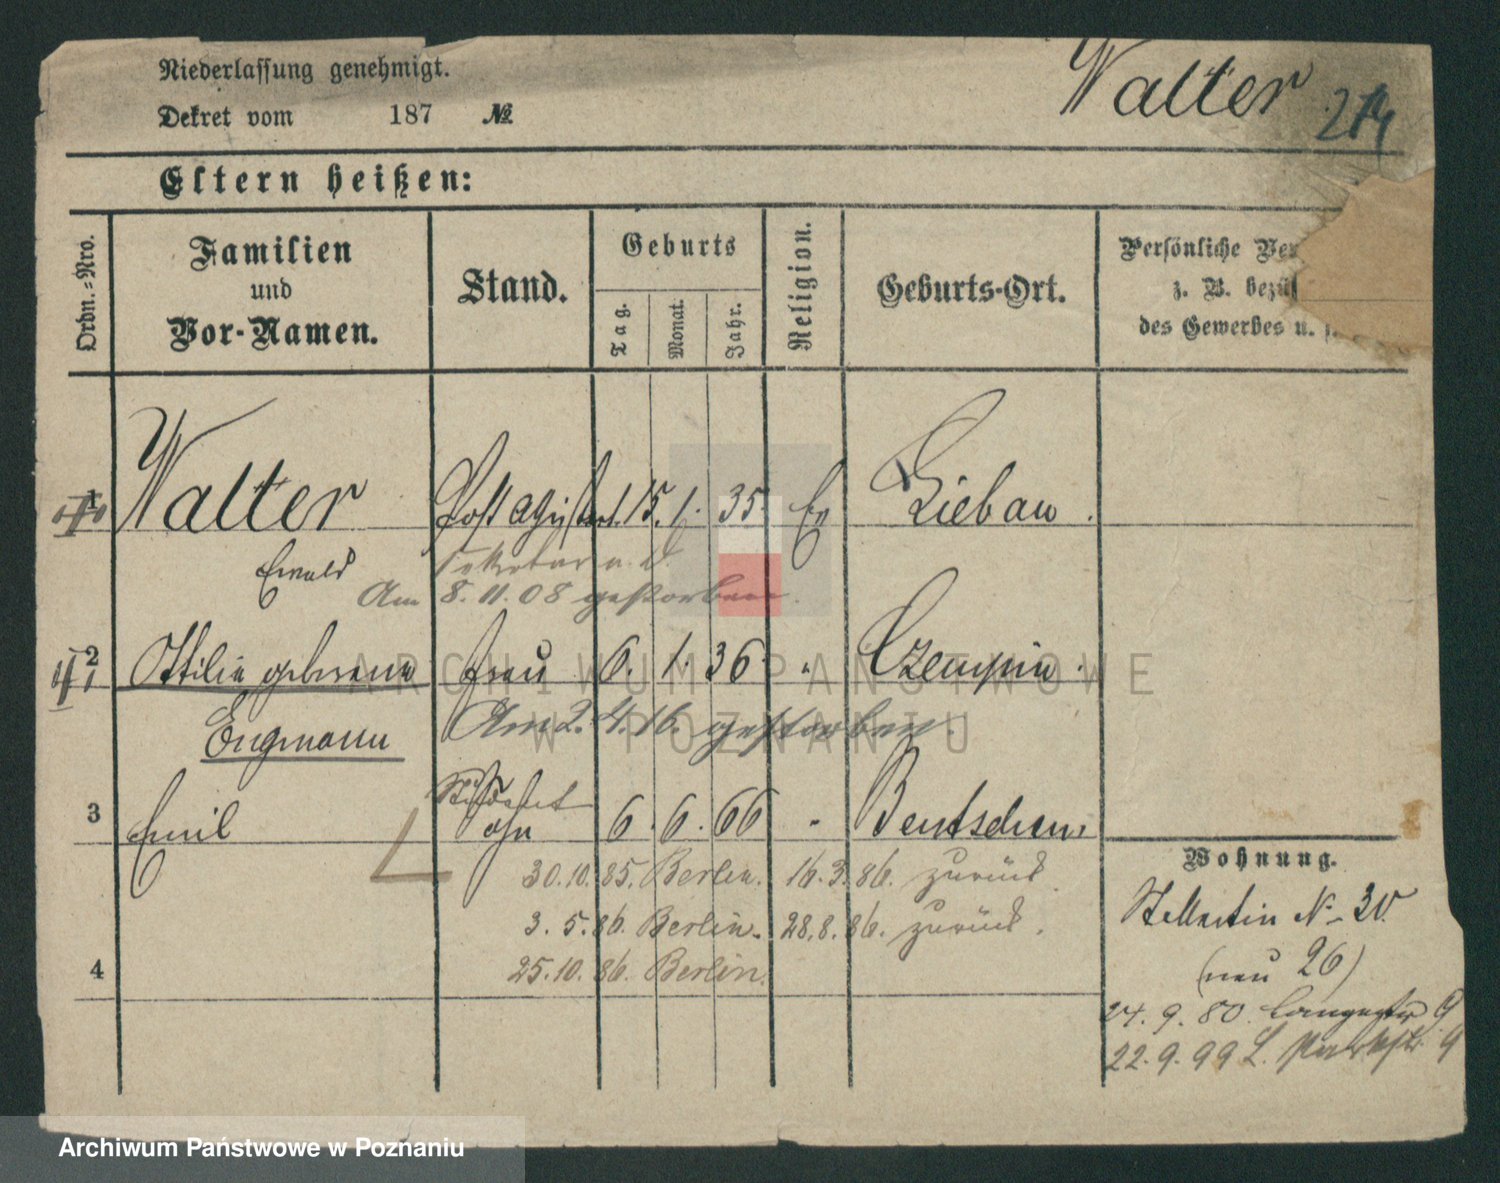 Niederlassung genehmigt.
Walter
Dekret vom 187 №
Eltern heißen:
Ordn.-Nro.
Familien
und
Vor-Namen.
Stand.
Geburts
Tag.
Monat.
Jahr.
Religion.
Geburts-Ort.
Persönliche Ver
z. B. bezüg
des Gewerbes u. s.
1 Walter Post 15. 1. 35. Ev Liebau.
Ewald
Sekretär a. D.
Am 8. 11. 08 gestorben.
2 Ottilie geborene Frau 6. 1. 36. " Czempin.
Engmann
Am 2. 4. 16. gestorben.
3 Emil Sohn 6. 6. 66 " Bentschen
30. 10. 85. Berlin. 16. 3. 86. zurück.
3. 5. 86. Berlin. 28. 8. 86. zurück.
4 25. 10. 86. Berlin.
Wohnung.
St Martin № 30
(neu 26)
24. 9. 80. Langestr 9
22. 9. 99 L.
ARCHIWUM PAŃSTWOWE
W POZNANIU
Archiwum Państwowe w Poznaniu